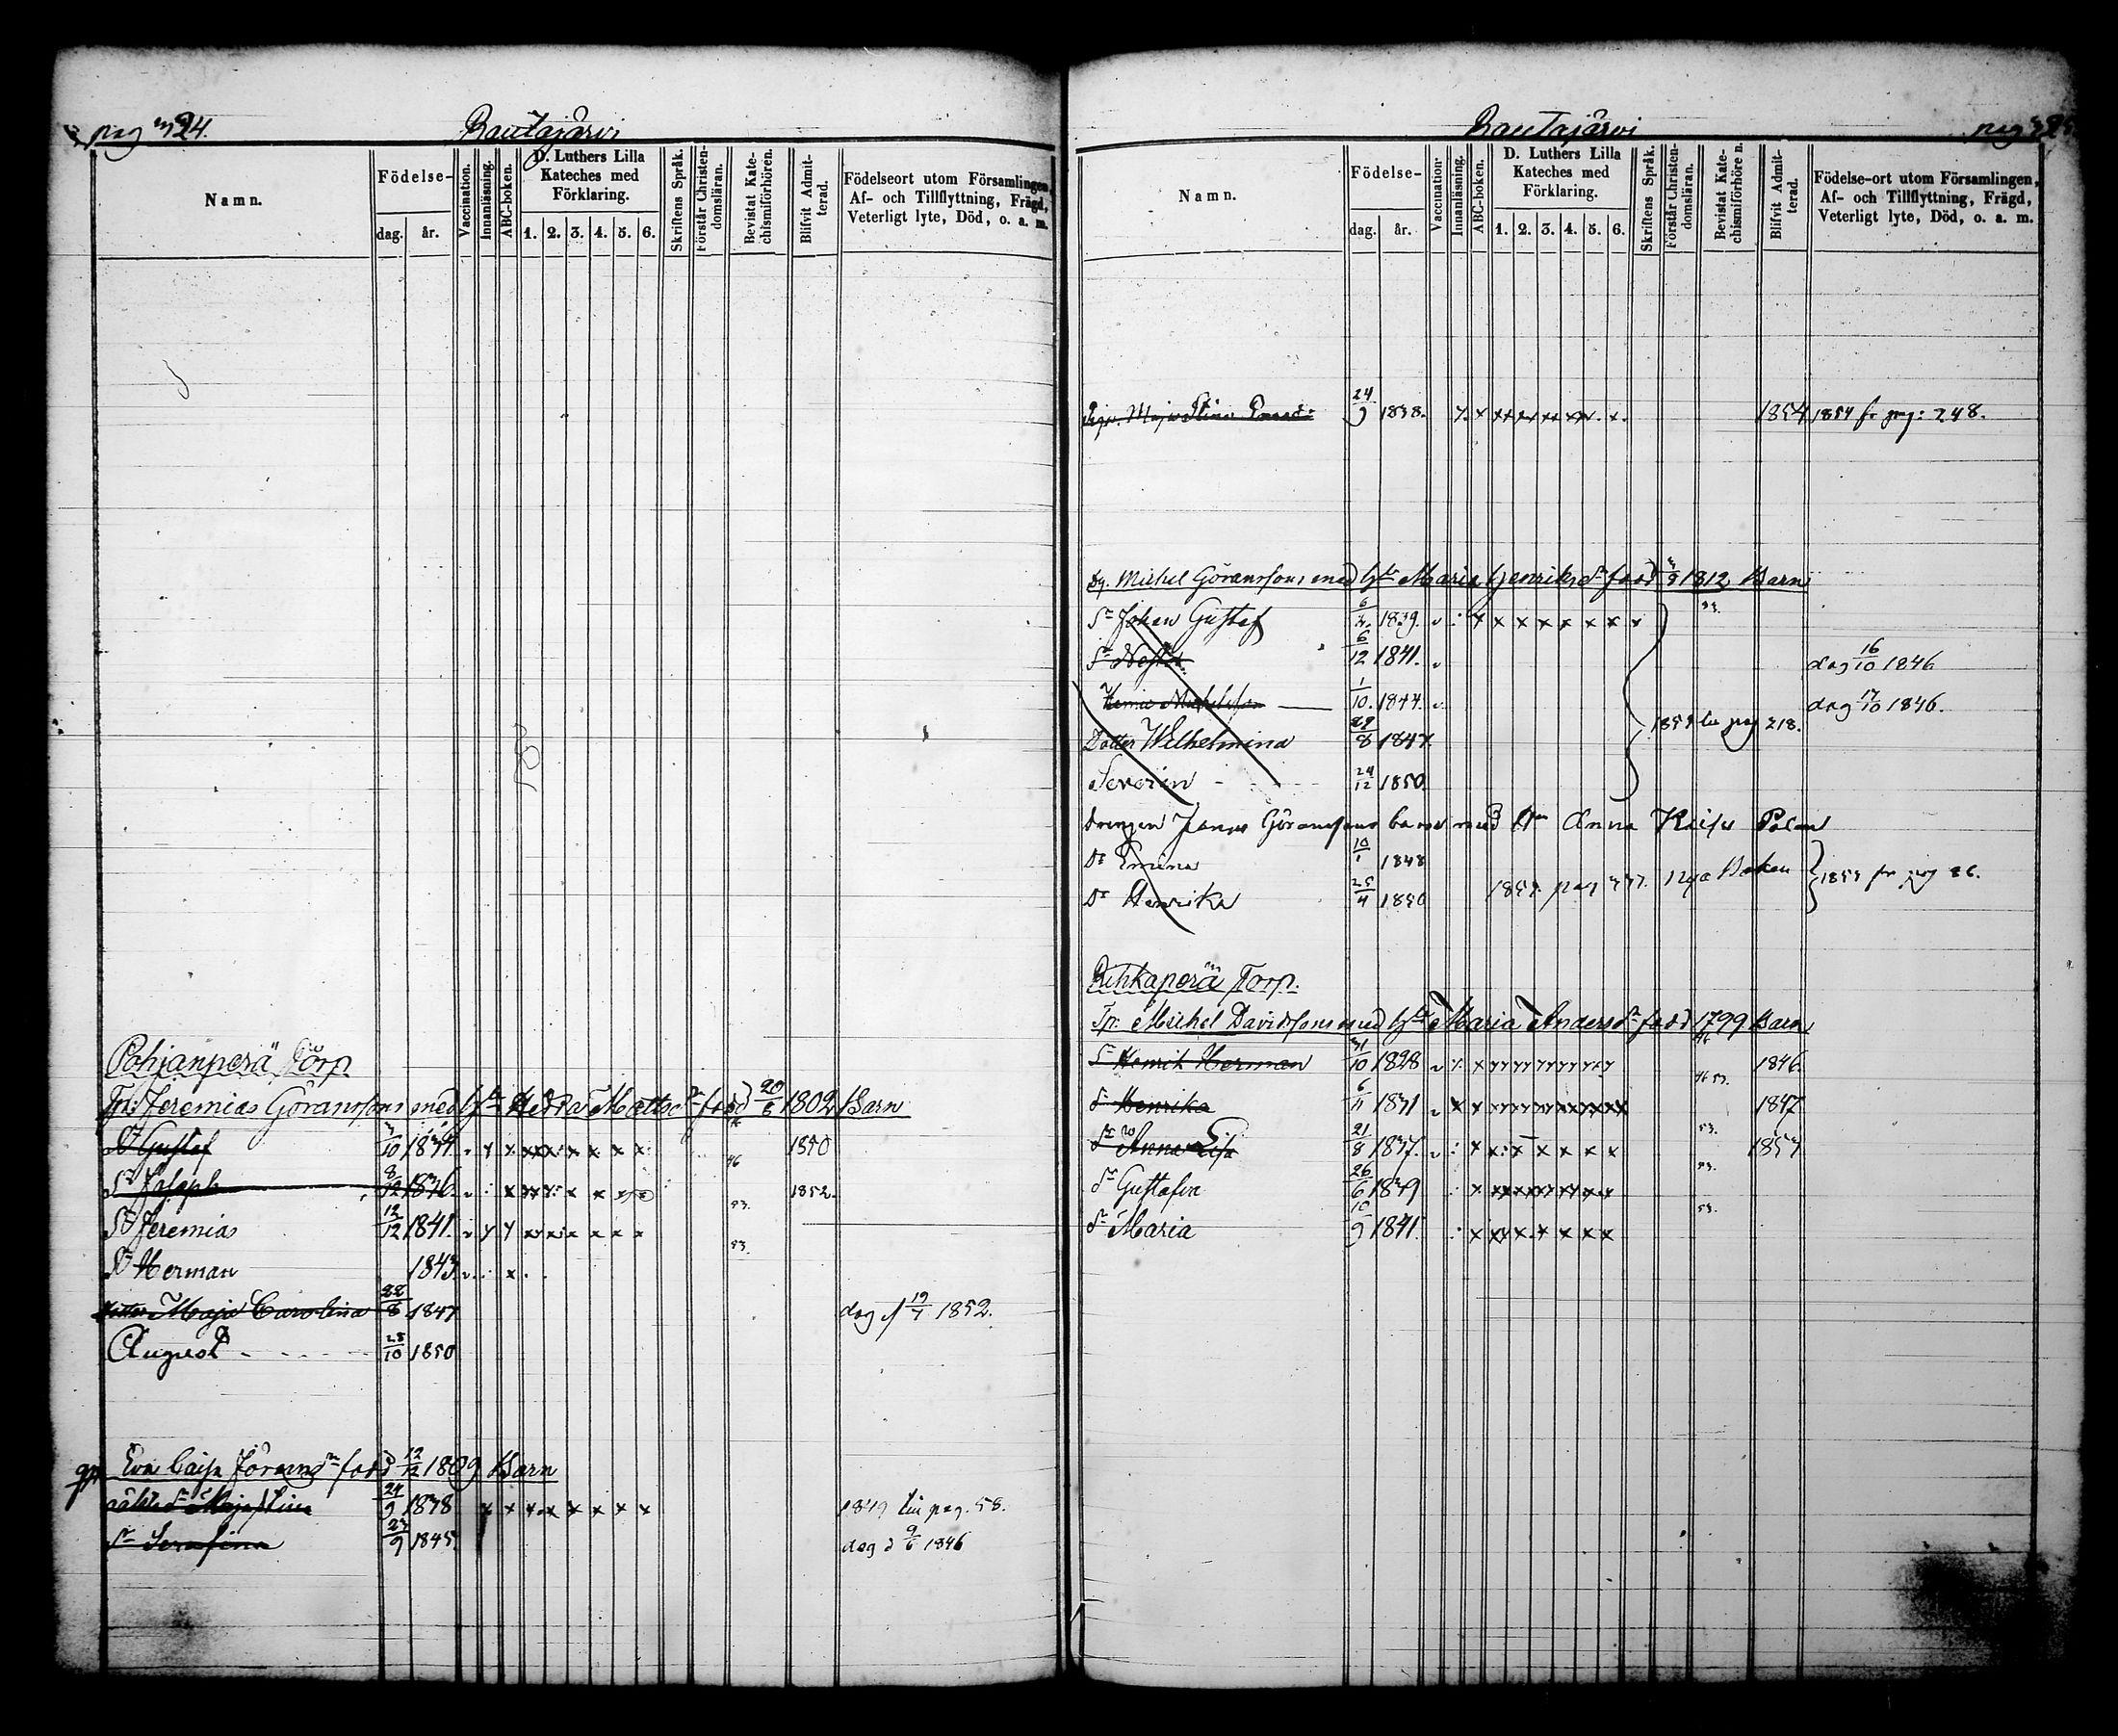 pag 324.
Rautajärvi
Namn.
Födelse-
dag.
år.
Vaccination.
Innanläsning.
ABC-boken.
D. Luthers Lilla
Kateches med
Förklaring.
1. 2. 3. 4. 5. 6.
Skriftens Språk.
Förstår Christen-
domsläran.
Bevistat Kate-
chismiförhören.
Blifvit Admit-
terad.
Födelseort utom Församlingen,
Af- och Tillflyttning, Frägd,
Veterligt lyte, Död, o. a. m.
Pohjanperä Torp
Tp: Jeremias Göranssons med h. Hedda Mattsdr född 20/6 1802 Barn
Sn Gustaf 3/10 1834. 1850
46
Sn Joseph 8/12 1836. 1852.
46
Sn Jeremias 12/12 1841.
53.
Sn Herman 1843.
53.
Dotter Maja Carolina 22/8 1847 dog 19/7 1852.
August 28/10 1850
Eva Caisa Göransdr född 12/12 1809 Barn
oäkta dr Maja Stina 24/9 1838 1849 till pag. 58.
dr Serafina 23/9 1845. dog d 9/6 1846
Rautajärvi
pag 325
Namn.
Födelse-
dag.
år.
Vaccination.
Innanläsning.
ABC-boken.
D. Luthers Lilla
Kateches med
Förklaring.
1. 2. 3. 4. 5. 6.
Skriftens Språk.
Förstår Christen-
domsläran.
Bevistat Kate-
chismiförhören.
Blifvit Admit-
terad.
Födelse-ort utom Församlingen,
Af- och Tillflyttning, Frägd,
Veterligt lyte, Död, o. a. m.
Maja Stina 24/9 1838. 1854 1854 fr pag: 248.
Dg. Michel Göranssons med h. Maria Henriksdr född 3/9 1812 Barn
Sn Johan Gustaf 6/3. 1839.
53.
Sn 6/12 1841. dog 16/10 1846
Michelsson 1/10. 1844. dog 17/10 1846.
Dotter Wilhelmina 22/8 1847. till pag 218.
Severin 24/12 1850
Drengen Göranssons barn med Anna Kaisa
Dr Emina 10/1 1848
Dr Henrika 25/4 1850 pag 337. Nya Boken fr pag 86.
Rihkaperä Torp.
Tp: Michel Davidssons med h. Maria Andersdr född 1799 Barn
Sn Henrik Herman 31/10 1828 1846.
46
dr Henrika 6/11 1831 1847
46 53.
dr Anna Lisa 21/8 1837. 1853
53.
dr Gustafva 26/6 1839
53.
dr Maria 10/9 1841.
53.